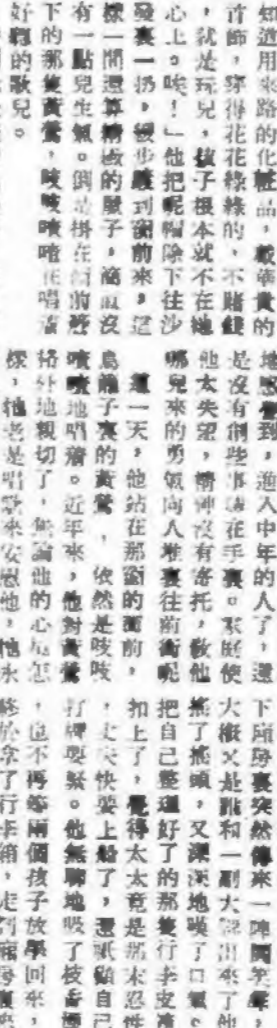 知道用來路的化粧品，最華貴的
首飾，穿得花花綠綠的，不賭錢
，就是玩兒，孩子根本就不在她
心上。唉！」他把呢帽除下往沙
發裏一扔，緩步踱到窗前來，這
樣一間還算精緻的屋子，簡直沒
有一點兒生氣。倒是掛在窗前簷
下的那隻黃鶯，吱吱喳喳在唱着
好聽的歌兒。
地感覺到，進入中年的人了，還
是沒有創些事業在手裏。家庭使
他太失望，精神沒有寄托，教他
哪兒來的勇氣向人堆裏往前衝呢
這一天，他站在那窗的面前，
鳥籠子裏的黃鶯，依然是吱吱
喳喳地唱着。近年來，他對黃鶯
格外地親切了，無論他的心是怎
樣，牠老是唱歌來安慰他，牠永
下廂房裏突然傳來一陣鬨笑聲，
大概又是誰和一副大牌出來了他
搖了搖頭，又深深地嘆了口氣。
把自己整理好了的那隻行李皮箱
扣上了，覺得太太竟是那末忍性
，丈夫快要上船了，還祇顧自己
打牌要緊。他無聊地吸了枝香煙
，也不再等兩個孩子放學回來，
終於拿了行李箱，走到廂房